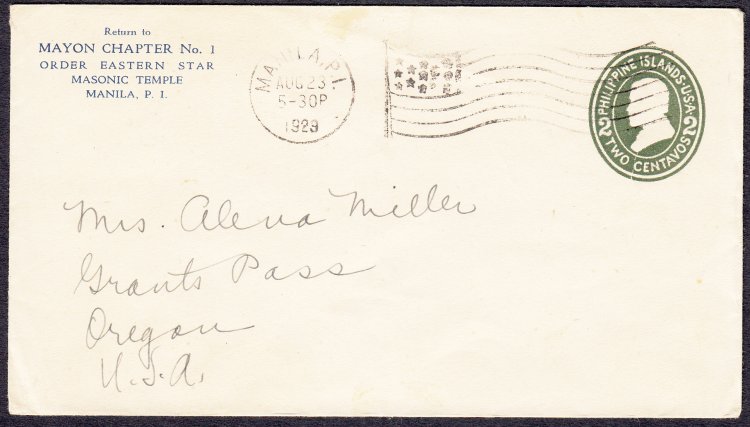 Return to
MAYON CHAPTER No. 1
ORDER EASTERN STAR
MASONIC TEMPLE
MANILA, P. I.
MANILA, P.I.
AUG 23
5-30P
1929
PHILIPPINE ISLANDS-U.S.A.
2 TWO CENTAVOS 2
Mrs. Alena Miller
Grants Pass
Oregon
U.S.A.